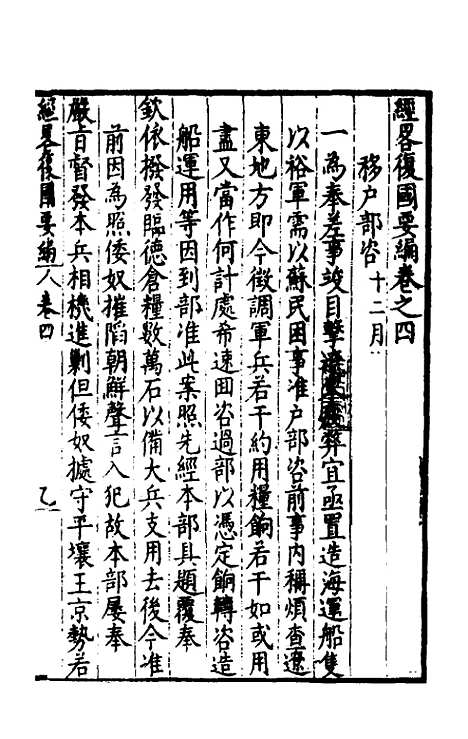 經畧復國要編卷之四
移户部咨十二月
一為奉差事竣目擊時弊宜亟置造海運船隻
以裕軍需以蘇民困事准户部咨前事内稱煩查遼
東地方即今徵調軍兵若干約用糧餉若干如或用
盡又當作何計處希速囬咨過部以憑定餉轉咨造
船運用等因到部准此案照先經本部具題覆奉
欽依撥發臨德倉糧數萬石以備大兵支用去後今准
前因為照倭奴摧䧟朝鮮聲言入犯故本部屡奉
嚴旨督發本兵相機進剿但倭奴據守平壤王京勢若
經畧復國要編 卷四 乙